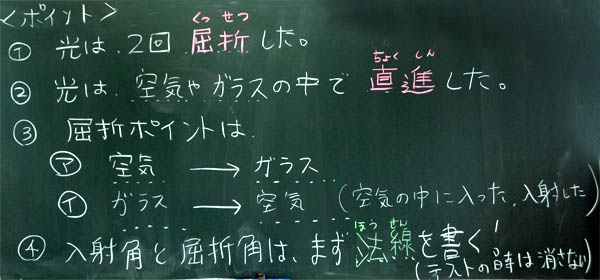 <ポイント>
くっ せつ
① 光は、2回 屈折した。
ちょく しん
② 光は、空気やガラスの中で 直進した。
③ 屈折ポイントは、
㋐ 空気 → ガラス
㋑ ガラス → 空気 (空気の中に入った、入射した)
ほう せん
④ 入射角と屈折角は、まず法線を書く!
(テストの時は消さない)